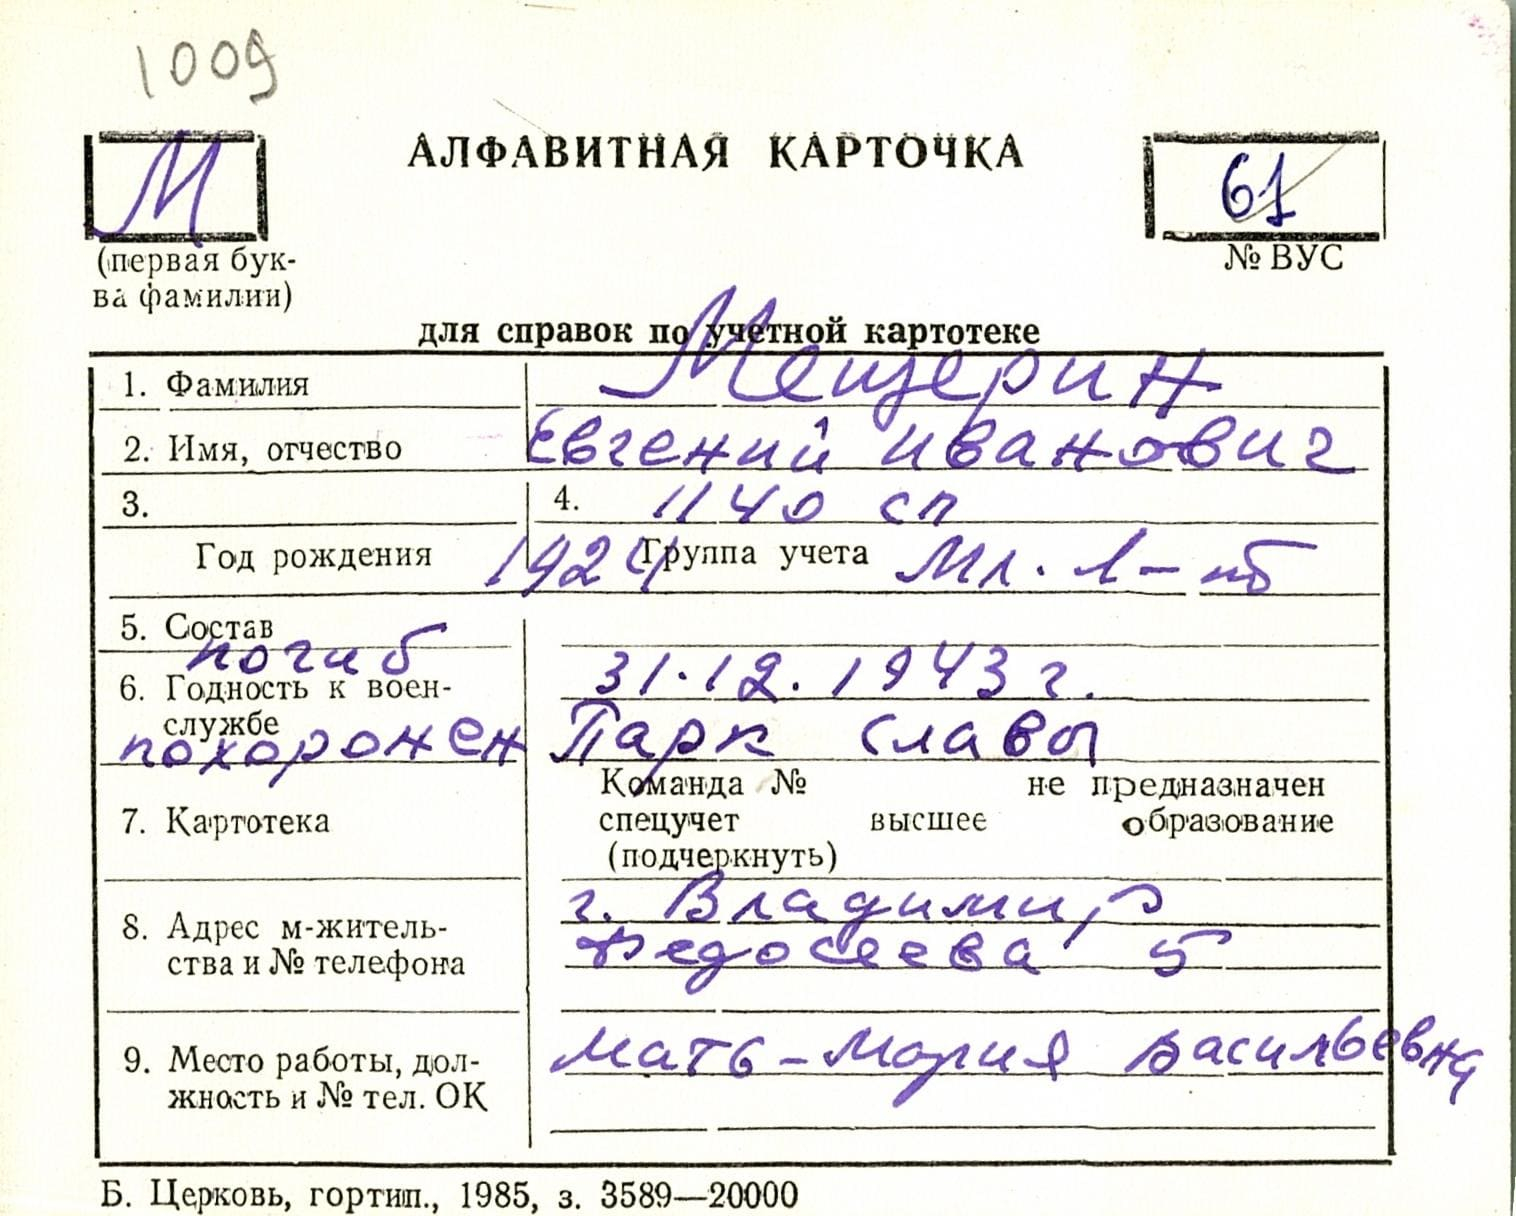 1009
М
АЛФАВИТНАЯ КАРТОЧКА
61
(первая бук-
ва фамилии)
№ ВУС
для справок по учетной картотеке
1. Фамилия Мещерин
2. Имя, отчество Евгений Иванович
3. 4. 1140 сп
Год рождения 1924 Группа учета Мл. л-нт
5. Состав
погиб 31.12.1943 г.
6. Годность к воен-
службе
похоронен Парк славы
7. Картотека
Команда № не предназначен
спецучет высшее образование
(подчеркнуть)
8. Адрес м-житель-
ства и № телефона
г. Владимир
Федосеева 5
9. Место работы, дол-
жность и № тел. ОК
Мать - Мария Васильевна
Б. Церковь, гортип., 1985, з. 3589—20000